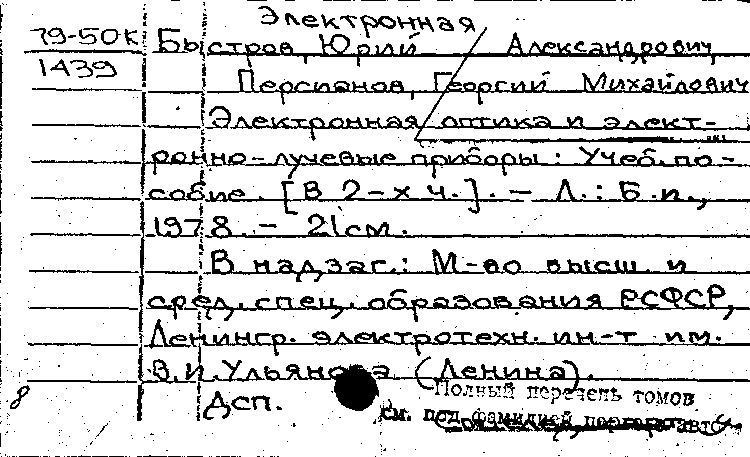 Электронная
79-50К Быстров, Юрий Александрович,
1439 Персианов, Георгий Михайлович
Электронная оптика и элект-
ронно-лучевые приборы: Учеб. по-
собие. [В 2-х ч.]. - Л.: Б.и.,
1978. - 21 см.
В надзаг.: М-во высш. и
сред. спец. образования РСФСР,
Ленингр. электротехн. ин-т им.
В.И. Ульянова (Ленина).
8 Дсп. Полный перечень томов
см. под фамилией